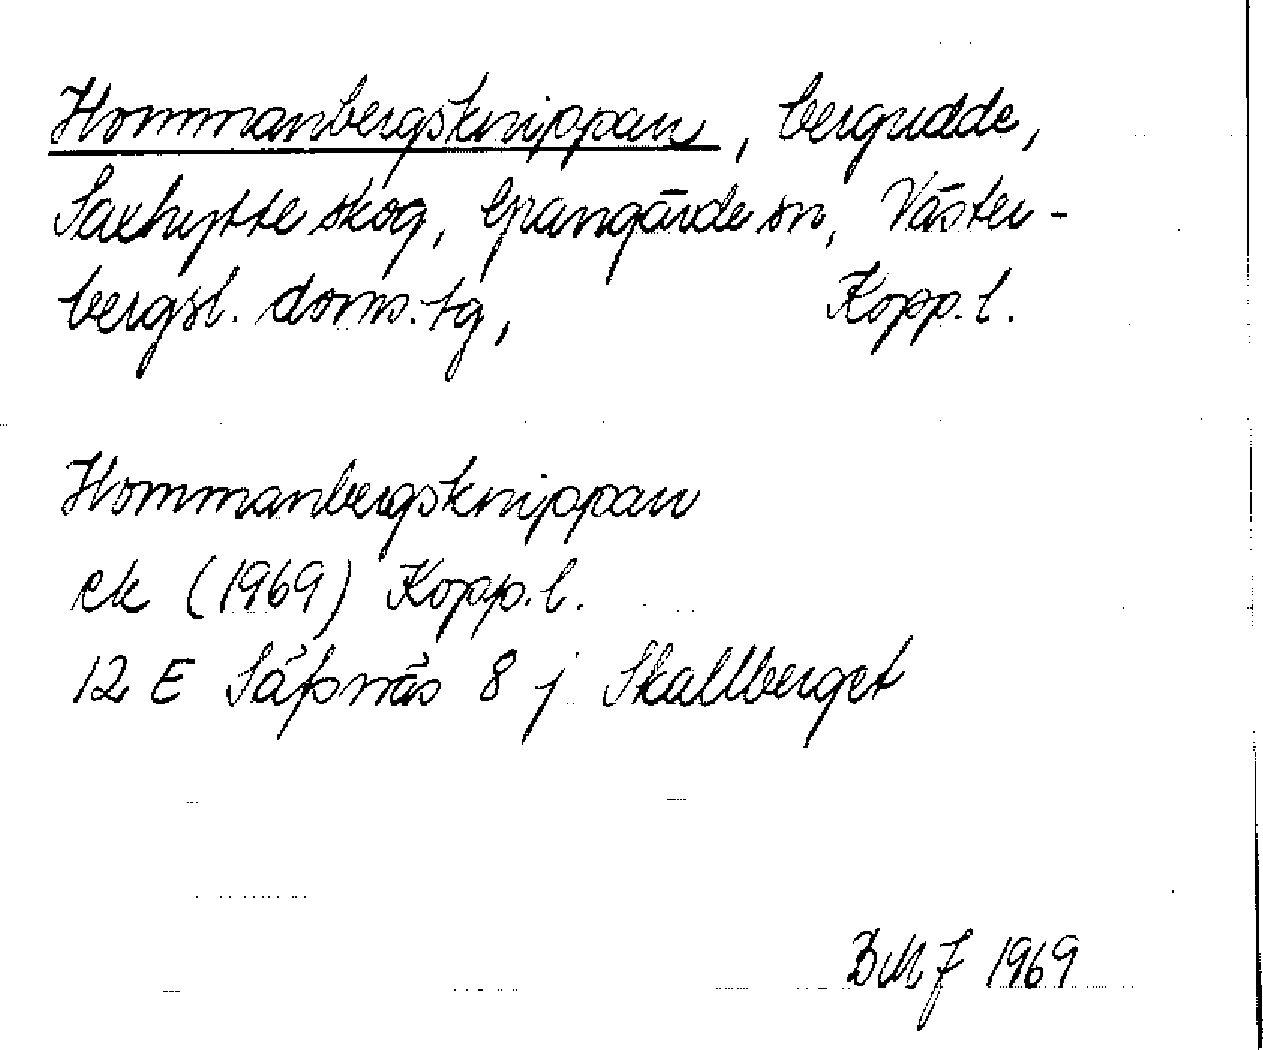 Hommanbergsknippan, bergudde,
Saxhytte skog, Grangärde sn, Väster-
bergsl. doms. tg, Kopp. l.
Hommanbergsknippan
ek (1969) Kopp. l.
12 E Säfsnäs 8 j Skallberget
BMJ 1969